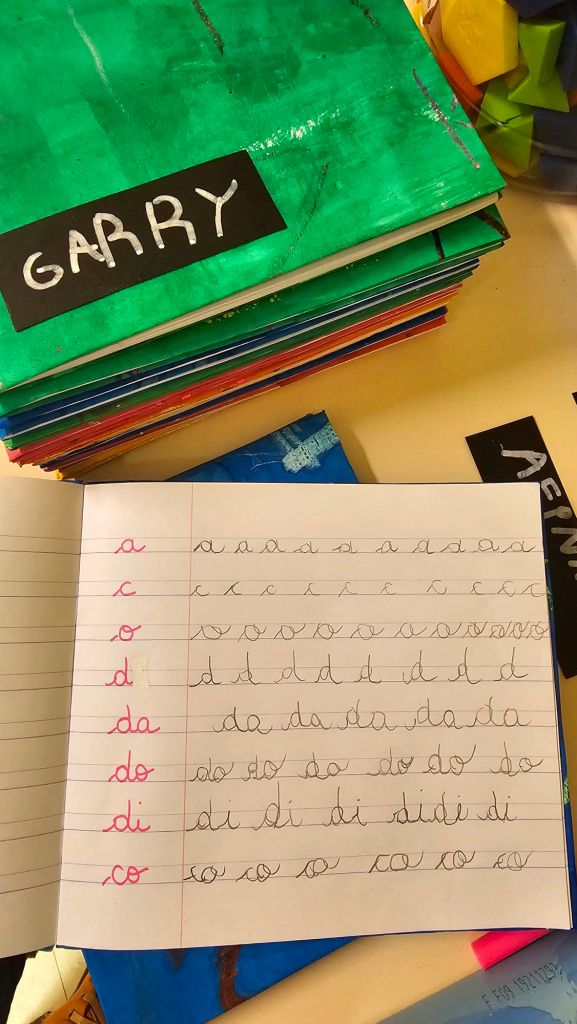 GARRY
a a a a a a a a a a a
c c c c c c c c c c c
o o o o o o o o o o o o
d d d d d d d d d
da da da da da da
do do do do do do do
di di di di di di di
co co co co co co co